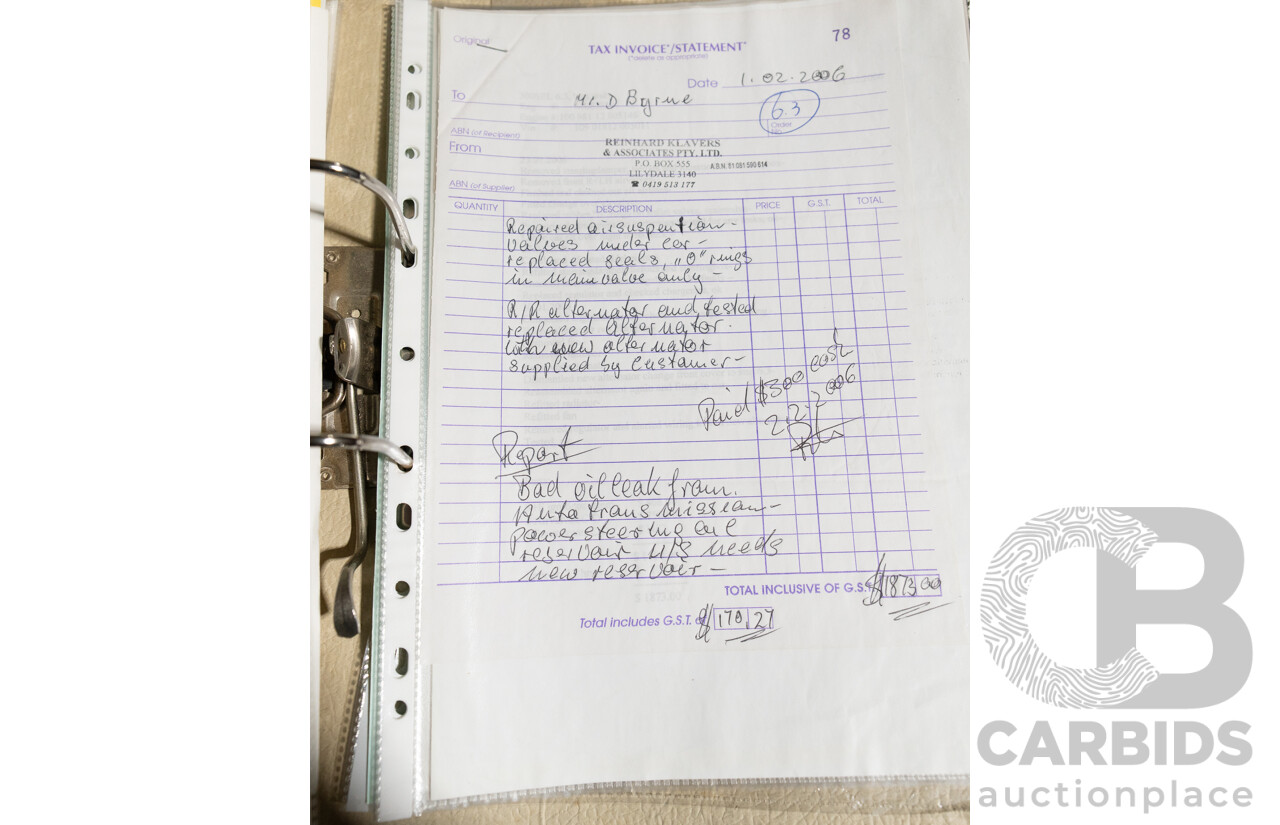 Original
78
TAX INVOICE*/STATEMENT*
(*delete as appropriate)
Date 1.02.2006
To Mr. D Byrne
6.3
Order No.
ABN (of Recipient)
From
REINHARD KLAVERS
& ASSOCIATES PTY. LTD.
P.O. BOX 555 A.B.N. 81 091 590 614
LILYDALE 3140
☎ 0419 513 177
ABN (of Supplier)
QUANTITY DESCRIPTION PRICE G.S.T. TOTAL
Repaired airsuspention -
valves under car -
replaced seals, „O" rings
in main valve only -
R/R alternator and tested
replaced alternator.
with new alternator
supplied by customer -
Paid $500 cash
2.2.2006
Report
Bad oil leak from.
Auto transmission -
power steering oil
reservoir U/S needs
new reservoir -
TOTAL INCLUSIVE OF G.S.T. $1873.00
Total includes G.S.T. of $170.27
CB
CARBIDS
auctionplace